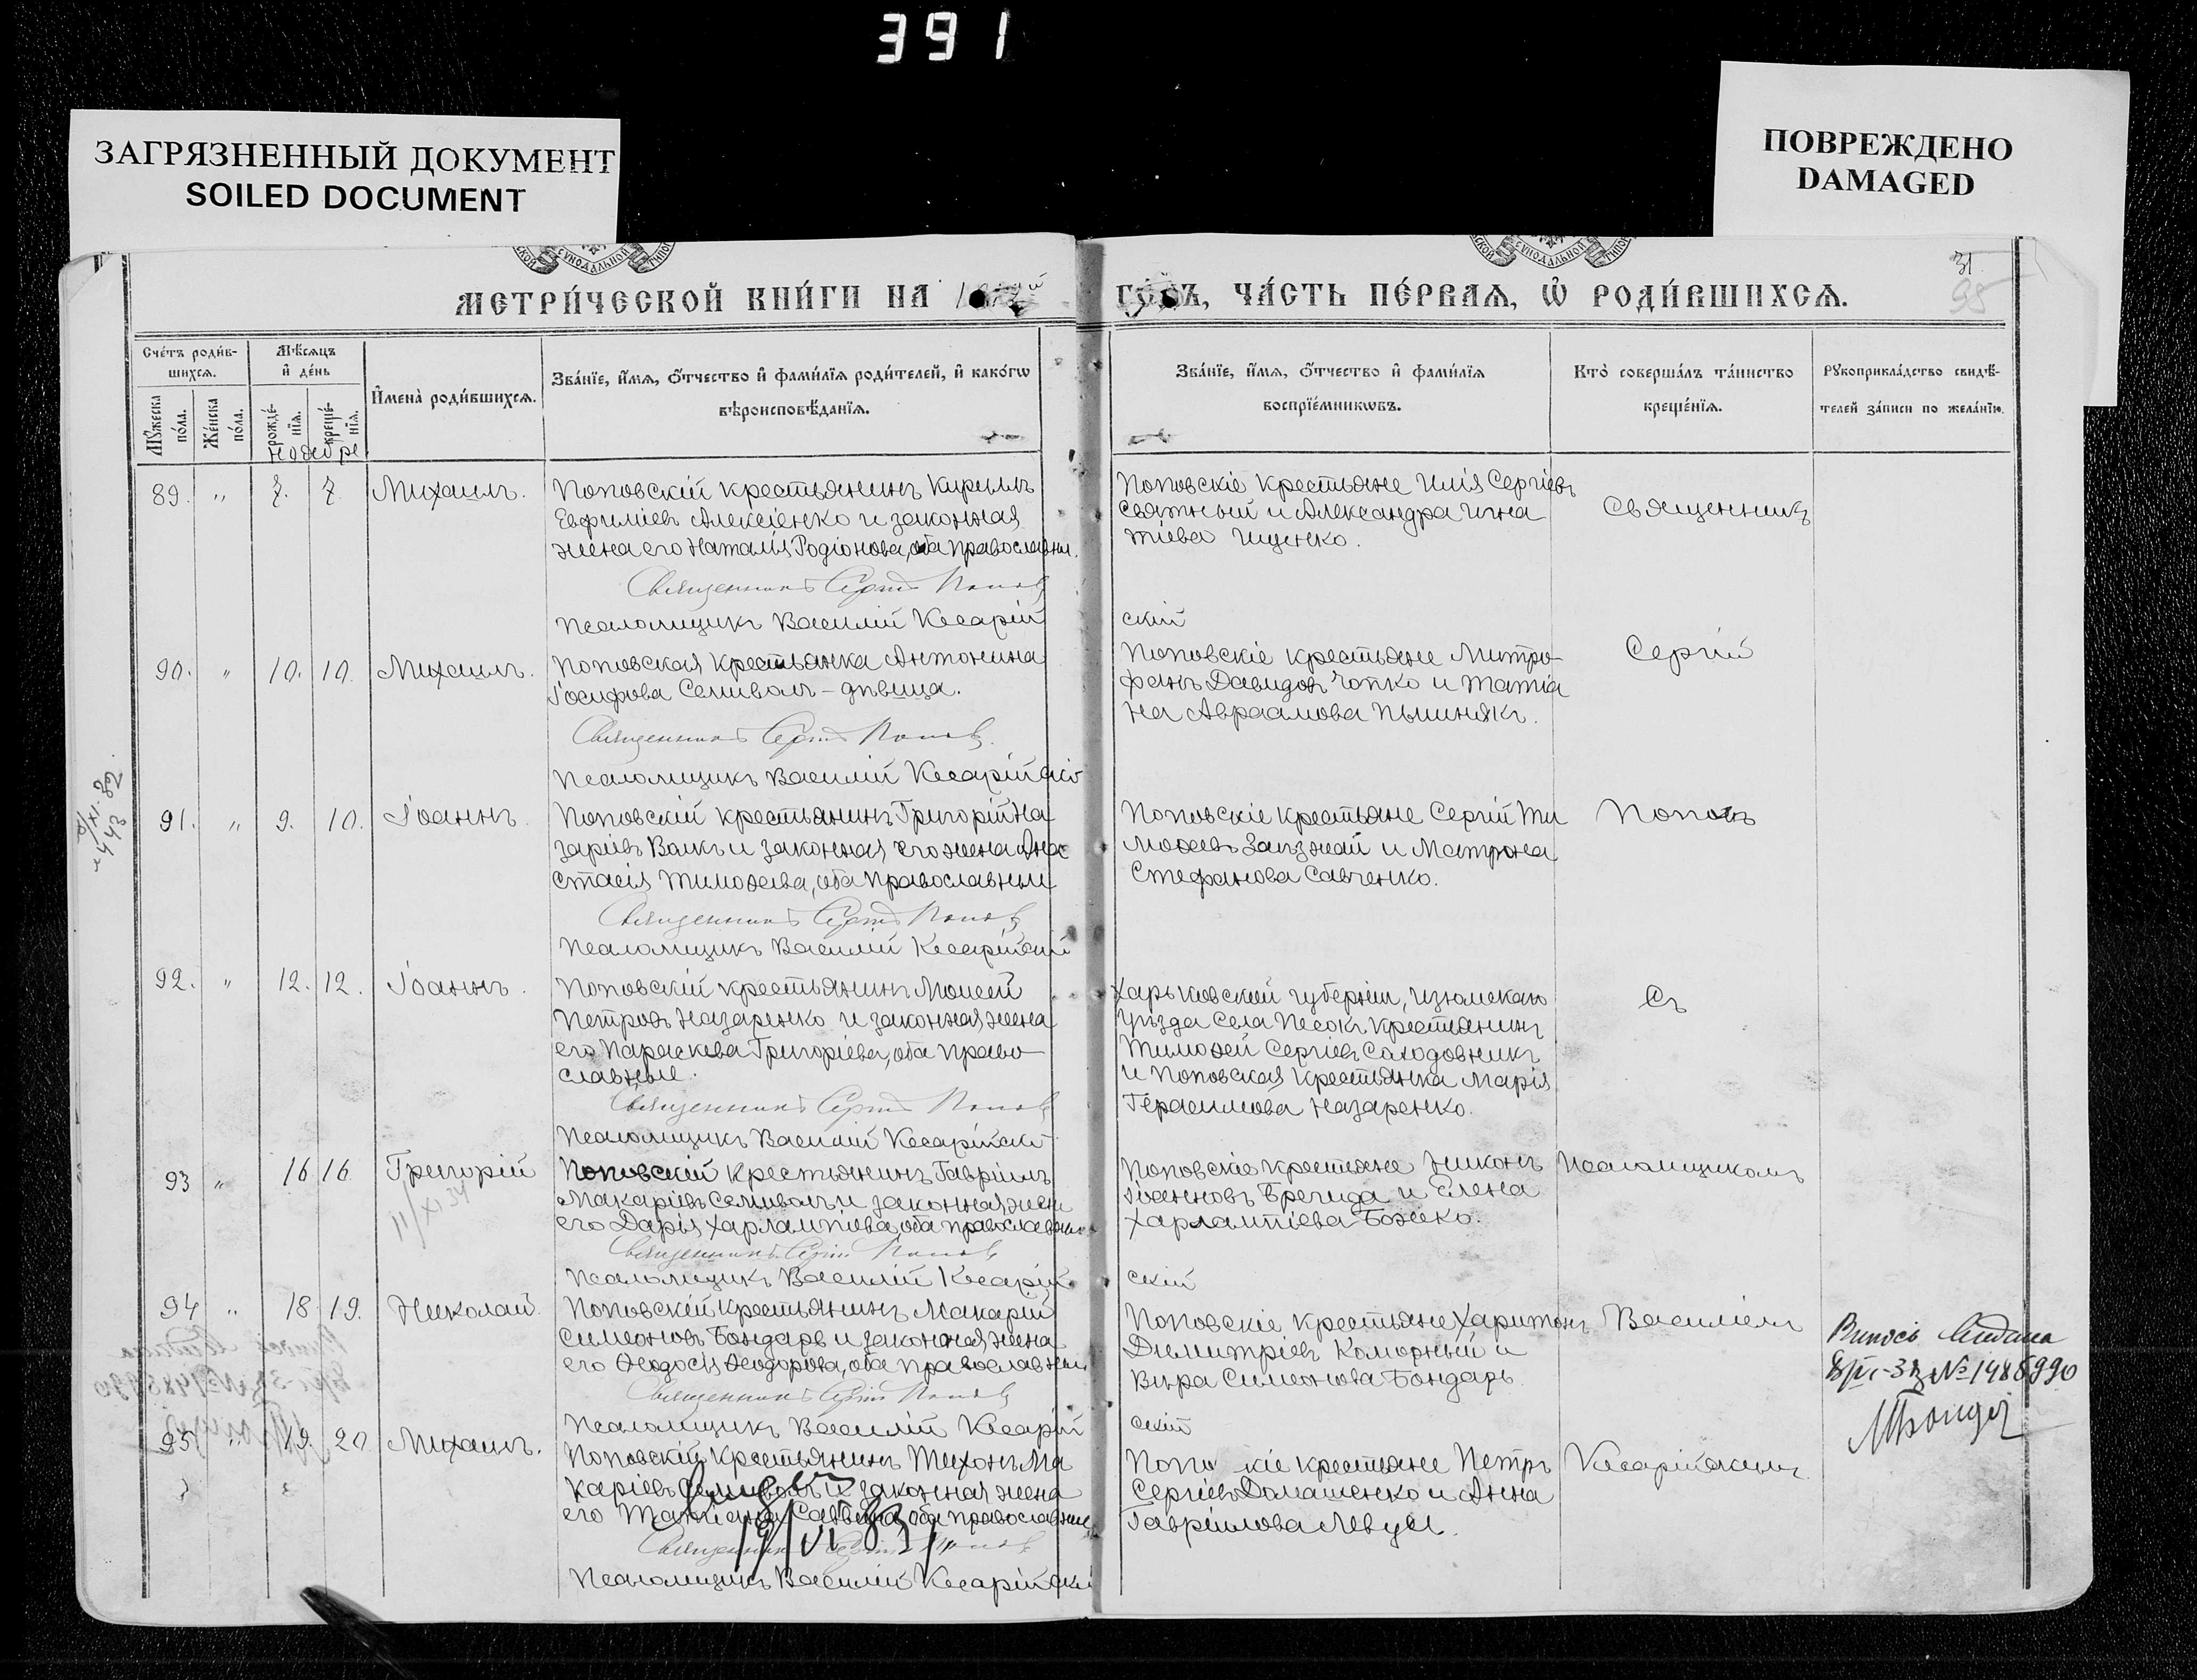 391
ЗАГРЯЗНЕННЫЙ ДОКУМЕНТ
SOILED DOCUMENT
ПОВРЕЖДЕНО
DAMAGED
31
95
МЕТРИ́ЧЕСКОЙ КНИ́ГИ НА
ЧА́СТЬ ПЕ́РВАѦ, Ѡ҆ РОДИ́ВШИХСѦ.
Счéтъ роди́в-
шихсѧ.
Мѣ́сѧцъ
и҆ дéнь
И҆менà роди́вшихсѧ.
Звáнїе, и҆́мѧ, ѻ҆́тчество и҆ фами́лїѧ роди́телей, и҆ какóгѡ
вѣроисповѣ́данїѧ.
Звáнїе, и҆́мѧ, ѻ҆́тчество и҆ фами́лїѧ
воспрїéмникѡвъ.
Ктò совершáлъ тáинство
крещéнїѧ.
Рꙋкоприклáдство свидѣ́-
телей зáписи по желáнїю.
Мꙋ́жеска
пóла.
Жéнска
пóла.
рождé-
нїѧ.
крещé-
нїѧ.
89. " 7. 7. Михаилъ.
Поповскій крестьянинъ Кириллъ
Евфиміевъ Алексіенко и законная
жена его Наталія Родіонова, оба православны.
Священникъ Сергій Поповъ
Псаломщикъ Василій Кесарій
Поповскіе крестьяне Илія Сергіевъ
и Александра Игна
тіева Ищенко.
Священникъ
скій
90. " 10. 10. Михаилъ.
Поповская крестьянка Антонина
Іосифова Селиволъ - дѣвица.
Священникъ Сергій Поповъ
Псаломщикъ Василій Кесарійскій
Поповскіе крестьяне Митро-
фанъ Давидовъ Чопко и Татіа
на Авраамова Пышнякъ.
Сергій
91. " 9. 10. Іоаннъ.
Поповскій крестьянинъ Григорій На
заріевъ Вакъ и законная его жена Ана
стасія Тимоѳеева, оба православные
Священникъ Сергій Поповъ
Псаломщикъ Василій Кесарійскій
Поповскіе крестьяне Сергій Ти
моѳеевъ Заѣзжай и Матрона
Стефанова Савченко.
Поповъ
92. " 12. 12. Іоаннъ.
Поповскій крестьянинъ Моисей
Петровъ Назаренко и законная жена
его Параскева Григоріева, оба право-
славные.
Священникъ Сергій Поповъ
Псаломщикъ Василій Кесарійскій
Харьковской губерніи, Изюмскаго
уѣзда села Песокъ крестьянинъ
Тимоѳей Сергіевъ Саходовникъ
и Поповская крестьянка Марія
Герасимова Назаренко.
Съ
93 " 16 16 Григорій
Поповскій крестьянинъ Гавріилъ
Макаріевъ Селиволъ и законная жена
его Дарія Харлампіева, оба православные
Священникъ Сергій Поповъ
Псаломщикъ Василій Кесарій
Поповскіе крестьяне Никонъ
Іоанновъ Брегида и Елена
Харлампіева Божко.
Псаломщикомъ
скій
94 " 18 19. Николай.
Поповскій крестьянинъ Макарій
Симеоновъ Бондарь и законная жена
его Ѳеодосія Ѳеодорова, оба православные
Священникъ Сергій Поповъ
Псаломщикъ Василій Кесарій
Поповскіе крестьяне Харитонъ
Димитріевъ Коморный и
Вѣра Симеонова Бондарь.
Василіемъ
№ 1485990
скій
95 " 19. 20. Михаилъ.
Поповскій крестьянинъ Тихонъ Ма
каріевъ Селиволъ и законная жена
его Татіана оба православные
Священникъ Поповъ
Псаломщикъ Василій Кесарійскій
крестьяне Петръ
Сергіевъ Домашенко и Анна
Гавріилова
Кесарійскимъ